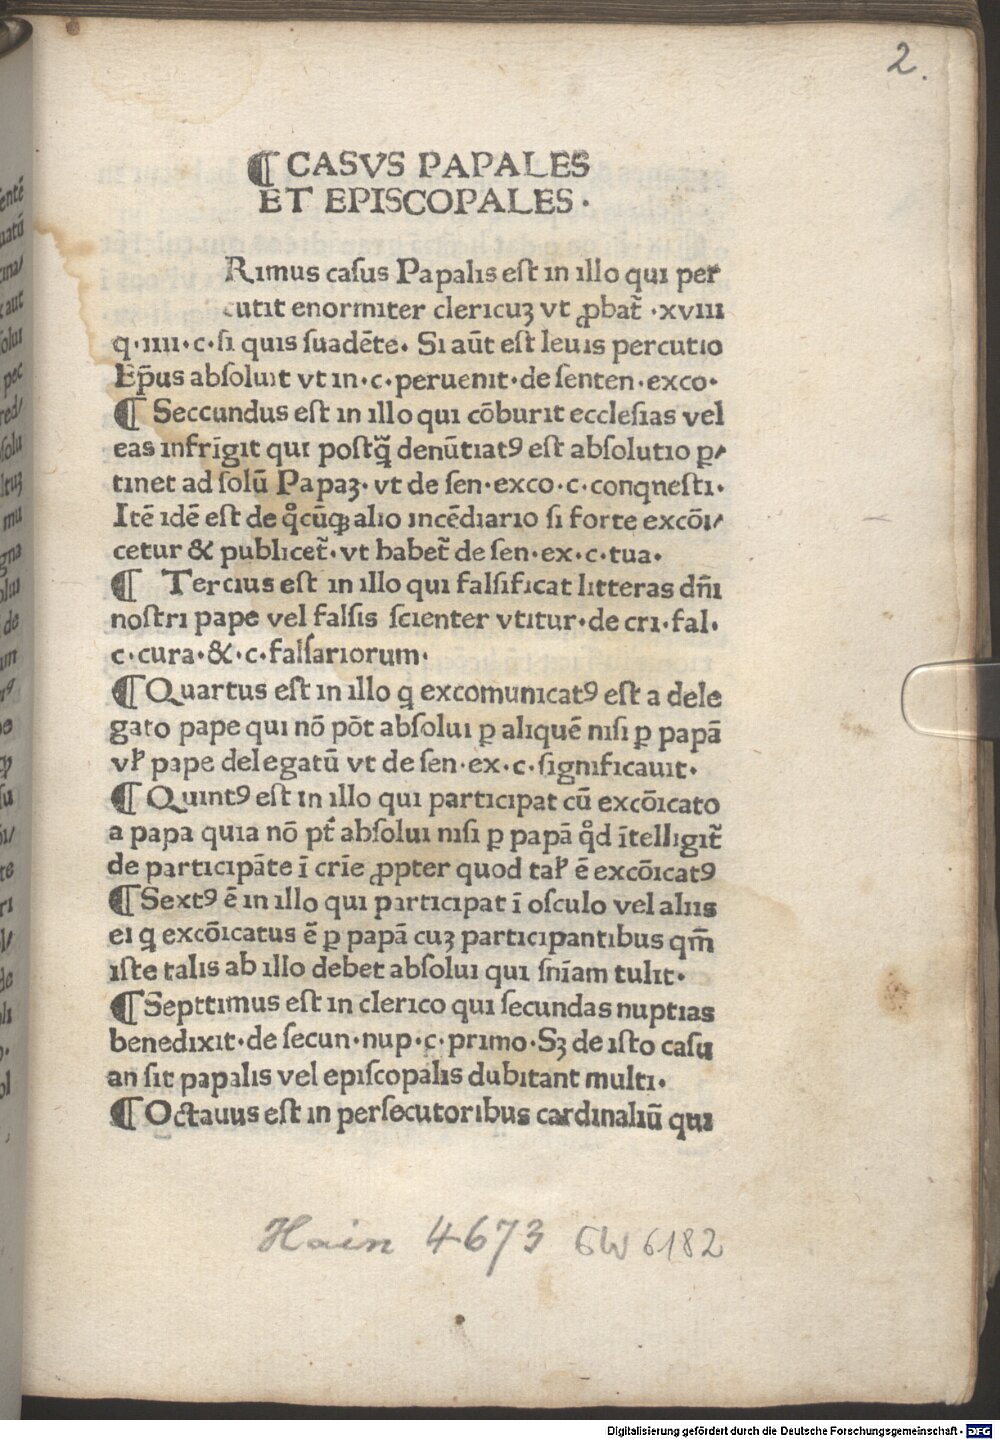 2.
¶ CASVS PAPALES
ET EPISCOPALES.
Rimus casus Papalis est in illo qui per
cutit enormiter clericuȝ vt ꝓbat᷑ ·xviii
q·iiii·c·si quis suadēte· Si aūt est leuis percutio
Ep̄us absoluit vt in·c·peruenit·de senten·exco·
¶ Seccundus est in illo qui cōburit ecclesias vel
eas infrīgit qui postq̄ denūtiatꝰ est absolutio ꝑ⸗
tinet ad solū Papaȝ· vt de sen·exco·c·conqnesti·
Itē idē est de qͥcūqꝫ alio incēdiario si forte excōi⸗
cetur & publicet᷑· vt habet᷑ de sen·ex·c·tua·
¶ Tercius est in illo qui falsificat litteras dn̄i
nostri pape vel falsis scienter vtitur·de cri·fal·
c·cura·&·c·falsariorum·
¶ Quartus est in illo q excomunicatꝰ est a dele
gato pape qui nō pōt absolui ꝑ aliquē nisi ꝑ papā
vl̛ pape delegatū vt de sen·ex·c·significauit·
¶ Quintꝰ est in illo qui participat cū excōicato
a papa quia nō pt̄ absolui nisi ꝑ papā qͦd ītelligit᷑
de participāte ī crīe ꝓpter quod tal̛ ē excōicatꝰ
¶ Sextꝰ ē in illo qui participat ī osculo vel aliis
ei q excōicatus ē ꝑ papā cuȝ participantibus qm̄
iste talis ab illo debet absolui qui sn̄iam tulit·
¶ Septtimus est in clerico qui secundas nuptias
benedixit·de secun·nup·c·primo·Sȝ de isto casu
an sit papalis vel episcopalis dubitant multi·
¶ Octauus est in persecutoribus cardinaliū qui
Hain 4673 GW 6182
Digitalisierung gefördert durch die Deutsche Forschungsgemeinschaft - DFG